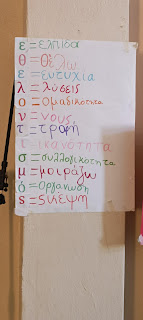 ε = ελπίδα
θ = θέλω
ε = ευτυχία
λ = λύσεις
ο = ομαδικότητα
ν = νους
τ = τροφή
ι = ικανότητα
σ = συλλογικότητα
μ = μοιράζω
ό = οργάνωση
ς = ςκέψη